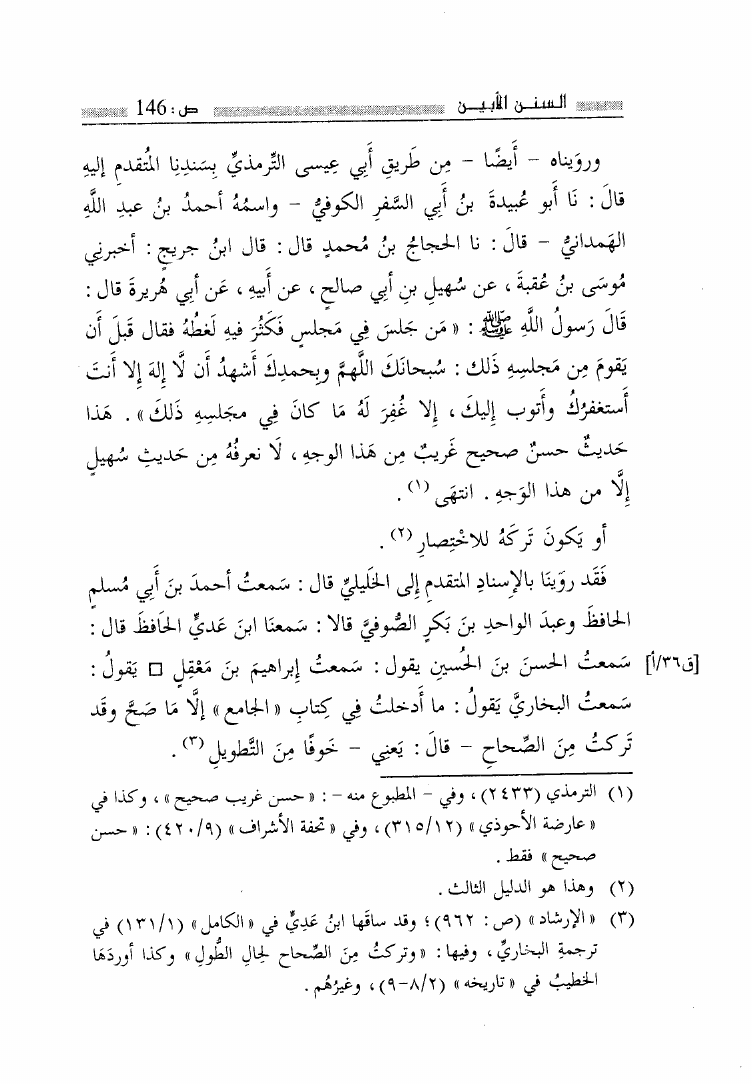 السنن الأبين ص: 146
ورويناه - أَيضًا - مِن طَريقِ أَبِي عِيسى التِّرمذيِّ بِسَندِنا المُتقدمِ إليهِ
قالَ : نَا أَبو عُبيدةَ بنُ أَبي السَّفرِ الكوفيُّ - واسمُهُ أحمدُ بنُ عبدِ اللَّهِ
الهَمدانيُّ - قالَ : نا الحجاجُ بنُ مُحمدٍ قال : قال ابنُ جريجٍ : أخبرني
مُوسَى بنُ عُقبةَ ، عن سُهيلِ بنِ أبي صالحٍ ، عن أَبيهِ ، عَن أبي هُريرةَ قال :
قالَ رَسولُ اللَّهِ ﷺ : « مَن جَلسَ فِي مَجلسٍ فَكَثُرَ فيهِ لَغطُهُ فقال قَبلَ أن
يَقومَ مِن مَجلسِهِ ذَلك : سُبحانَكَ اللَّهمَّ وبِحمدِكَ أَشهدُ أَن لَّا إِلهَ إلا أَنتَ
أَستغفرُكَ وأَتوب إِليكَ ، إِلا غُفِرَ لَهُ مَا كانَ فِي مجلسِهِ ذَلكَ » . هَذا
حَديثٌ حسنٌ صحيح غَريبٌ مِن هَذا الوجهِ ، لَا نعرفُهُ مِن حَديثِ سُهيلٍ
إِلَّا من هذا الوَجهِ . انتهَى (١) .
أو يَكونَ تَركَهُ للاخْتِصارِ (٢) .
فَقَد روَينَا بالإِسنادِ المتقدمِ إلى الخَليليِّ قال : سَمعتُ أحمدَ بنَ أَبِي مُسلمٍ
الحافظَ وعبدَ الواحدِ بنَ بَكرٍ الصُّوفيَّ قالا : سَمعنَا ابنَ عَديٍّ الحَافظَ قال :
سَمعتُ الحسنَ بنَ الحُسينِ يقول : سَمعتُ إبراهيمَ بنَ مَعْقِلٍ □ يَقولُ : [ق٣٦/أ]
سَمعتُ البخاريَّ يَقولُ : ما أَدخلتُ فِي كِتابِ « الجامع » إلَّا مَا صَحَّ وقَد
تَركتُ مِنَ الصِّحاحِ - قالَ : يَعنِي - خَوفًا مِنَ التَّطويلِ (٣) .
(١) الترمذي (٢٤٣٣) ، وفي - المطبوع منه - : « حسن غريب صحيح » ، وكذا في
« عارضة الأحوذي » (٣١٥/١٢) ، وفي « تحفة الأشراف » (٤٢٠/٩) : « حسن
صحيح » فقط .
(٢) وهذا هو الدليل الثالث .
(٣) « الإرشاد » (ص : ٩٦٢) ؛ وقد ساقَها ابنُ عَديٍّ في « الكامل » (١٣١/١) في
ترجمةِ البخاريِّ ، وفيها : « وتركتُ مِنَ الصِّحاحِ لحالِ الطُّولِ » وكذا أوردَهَا
الخطيبُ في « تاريخه » (٨/٢-٩) ، وغيرُهُم .